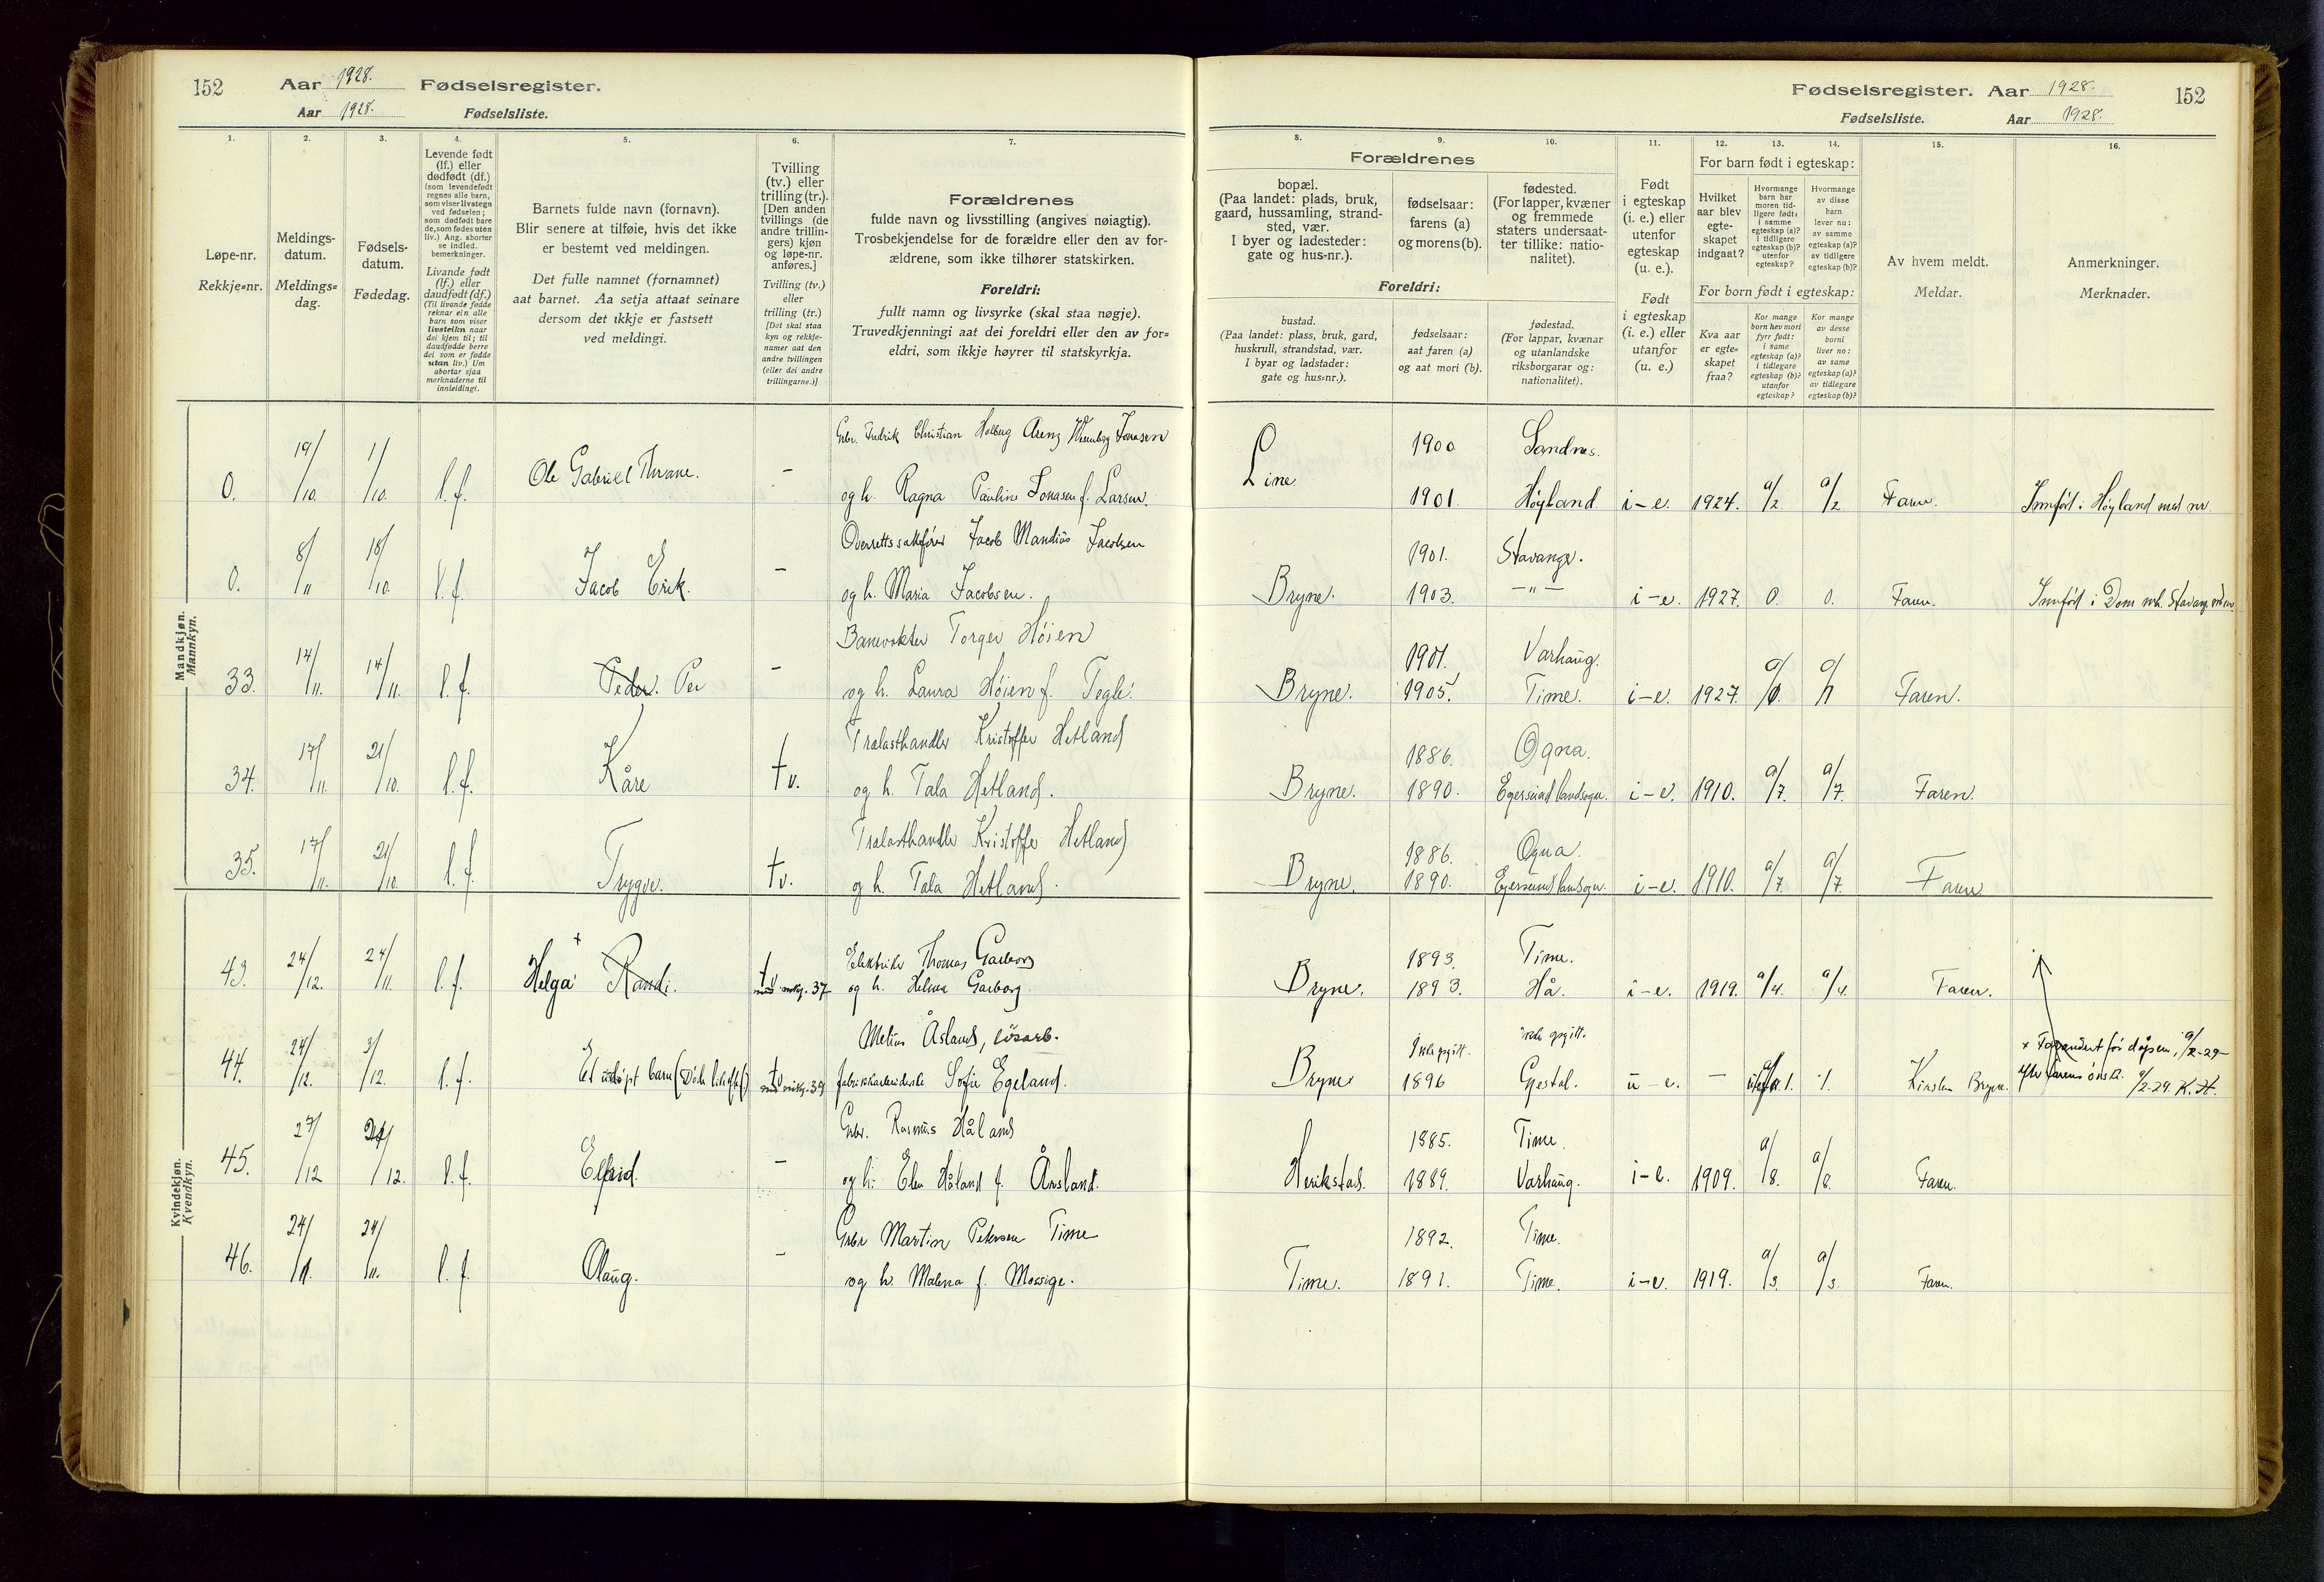 152 Aar 1928. Fødselsregister.
Aar 1928. Fødselsliste.
Fødselsregister. Aar 1928. 152
Fødselsliste. Aar 1928.
1. 2. 3. 4. 5. 6. 7.
Løpe-nr.
Rekkje-nr.
Meldings-
datum.
Meldings-
dag.
Fødsels-
datum.
Fødedag.
Levende født
(lf.) eller
dødfødt (df.)
(som levendefødt
regnes alle barn,
som viser livstegn
ved fødselen;
som dødfødt bare
de, som fødes uten
liv.) Ang. aborter
se indled.
bemerkninger.
Livande født
(lf.) eller
daudfødt (df.)
(Til livande fødde
reknar ein alle
barn som viser
livsteikn naar
dei kjem til; til
daudfødde berre
dei som er fødde
utan liv.) Um
abortar sjaa
merknaderne til
innleidingi.
Barnets fulde navn (fornavn).
Blir senere at tilføie, hvis det ikke
er bestemt ved meldingen.
Det fulle namnet (fornamnet)
aat barnet. Aa setja attaat seinare
dersom det ikkje er fastsett
ved meldingi.
Tvilling
(tv.) eller
trilling (tr.).
[Den anden
tvillings (de
andre trillin-
gers) kjøn
og løpe-nr.
anføres.]
Tvilling (tv.)
eller
trilling (tr.)
[Det skal staa
kyn og rekkje-
numer aat den
andre tvillingen
(eller dei andre
trillingarne.)]
Forældrenes
fulde navn og livsstilling (angives nøiagtig).
Trosbekjendelse for de forældre eller den av for-
ældrene, som ikke tilhører statskirken.
Foreldri:
fullt namn og livsyrke (skal staa nøgje).
Truvedkjenningi aat dei foreldri eller den av for-
eldri, som ikkje høyrer til statskyrkja.
8. 9. 10. 11. 12. 13. 14. 15. 16.
Forældrenes
bopæl.
(Paa landet: plads, bruk,
gaard, hussamling, strand-
sted, vær.
I byer og ladesteder:
gate og hus-nr.).
fødselsaar:
farens (a)
og morens (b).
fødested.
(For lapper, kvæner
og fremmede
staters undersaat-
ter tillike: natio-
nalitet).
Foreldri:
bustad.
(Paa landet: plass, bruk, gard,
huskrull, strandstad, vær.
I byar og ladstader:
gate og hus-nr.).
fødselsaar:
aat faren (a)
og aat mori (b).
fødestad.
(For lappar, kvænar
og utanlandske
riksborgarar og:
nationalitet).
Født
i egteskap
(i. e.) eller
utenfor
egteskap
(u. e.).
Født
i egteskap
(i. e.) eller
utanfor
(u. e.)
For barn født i egteskap:
Hvilket
aar blev
egte-
skapet
indgaat?
Hvormange
barn har
moren tid-
ligere født:
i samme
egteskap (a)?
i tidligere
egteskap (b)?
utenfor
egteskap?
Hvormange
av disse
barn
lever nu:
av samme
egteskap (a)?
av tidligere
egteskap (b)?
For born født i egteskap:
Kva aar
er egte-
skapet
fraa?
Kor mange
born hev mori
fyrr født:
i same
egteskap (a)?
i tidlegare
egteskap (b)?
utanfor
egteskap?
Kor mange
av desse
borni
liver no:
av same
egteskap (a)?
av tidlegare
egteskap (b)?
Av hvem meldt.
Meldar.
Anmerkninger.
Merknader.
Mandkjøn.
Mannkyn.
Gbr. Fredrik Christian Jonasen
0. 19/10. 1/10. l.f. Ole Gabriel Thrane. – og h. Ragna Pauline Jonasen f. Larsen.
Line 1900 Sandnes.
1901. Høyland i-e. 1924. a/2 a/2 Faren. Innført i Høyland med nr
Overrettssakfører Jacob Mandius Jacobsen
0. 8/11 18/10. l.f. Jacob Erik. – og h. Maria Jacobsen.
1901. Stavanger.
Bryne. 1903. –"– i-e. 1927. 0. 0. Faren. Innført i Dom mh. Stavanger
Banevokter Torger Höien
33. 14/11. 14/11. l.f. Peder. Per – og h. Laura Höien f. Tegle.
1901. Varhaug.
Bryne. 1905. Time. i-e. 1927. Faren.
Trælasthandler Kristoffer Hetland
34. 17/11. 21/10. l.f. Kåre tv. og h. Tala Hetland.
1886. Ogna.
Bryne. 1890. Egersund landsogn. i-e. 1910. a/7. a/7. Faren.
Trælasthandler Kristoffer Hetland
35. 17/11. 21/10. l.f. Trygve. tv. og h. Tala Hetland.
1886. Ogna.
Bryne. 1890. Egersund landsogn. i-e. 1910. a/7. a/7. Faren
Kvindekjøn.
Kvendkyn.
Elektriker Thomas Garborg
43. 24/12. 24/11. l.f. Helga + Randi. tv 37 og h. Helena Garborg.
1893. Time.
Bryne. 1893. Hå. i-e. 1919. a/4. a/4. Faren.
Metius Åsland, lösarb.
44. 24/12. 3/12. l.f. Et udöpt barn tv 39 fabrikkarbeiderske Sofie Egeland.
Ikke opgitt. ikke opgitt.
Bryne 1896 Gjestal. u-e. – Kirsten Bryne.
+ Forandret för dåpen, 9/2-29-
efter farens önske. 9/2-29 K.H.
Gbr. Rasmus Håland
45. 27/12 /12. l.f. Elfrid. – og h. Elen Håland f. Årsland.
1885. Time.
Herikstad. 1889. Varhaug. i-e. 1909. a/8. a/8. Faren.
Gbr Martin Petersen Time
46. 24/11. 24/11. l.f. Olaug. – og h. Malena f. Mossige.
1892. Time.
Time. 1891. Time. i-e. 1919. a/3. a/3. Faren.